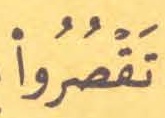 تَقْصُرُواْ